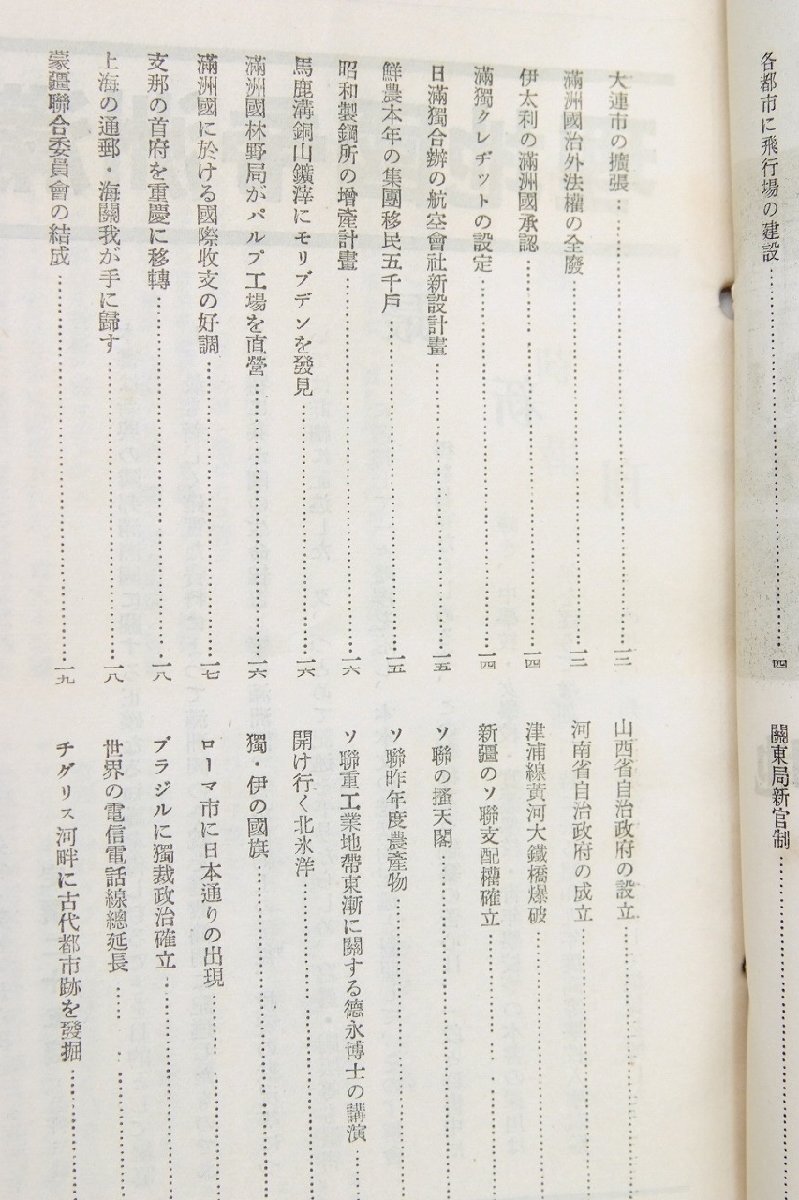 各都市に飛行場の建設……四
關東局新官制……
大連市の擴張……一三
滿洲國治外法權の全廢……一三
伊太利の滿洲國承認……一四
滿獨クレヂットの設定……一四
日滿獨合辦の航空會社新設計畫……一五
鮮農本年の集團移民五千戶……一五
昭和製鋼所の增產計畫……一六
馬鹿溝銅山鑛滓にモリブデンを發見……一六
滿洲國林野局がパルプ工場を直營……一六
滿洲國に於ける國際收支の好調……一七
支那の首府を重慶に移轉……一八
上海の通郵・海關我が手に歸す……一八
蒙疆聯合委員會の結成……一九
山西省自治政府の設立……
河南省自治政府の成立……
津浦線黃河大鐵橋爆破……
新疆のソ聯支配權確立……
ソ聯の摩天閣……
ソ聯昨年度農產物……
ソ聯重工業地帶東漸に關する德永博士の講演……
開け行く北氷洋……
獨・伊の國旗……
ローマ市に日本通りの出現……
ブラジルに獨裁政治確立……
世界の電信電話線總延長……
チグリス河畔に古代都市跡を發掘……